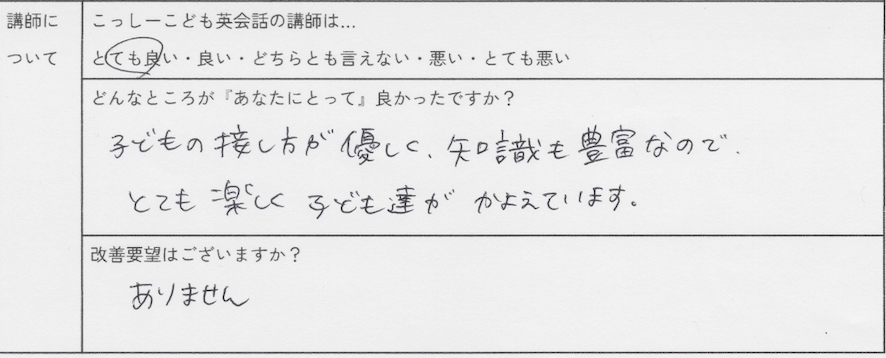 講師に
ついて
こっしーこども英会話の講師は…
とても良い・良い・どちらとも言えない・悪い・とても悪い
どんなところが『あなたにとって』良かったですか？
子どもの接し方が優しく、知識も豊富なので、
とても楽しく子ども達がかよえています。
改善要望はございますか？
ありません